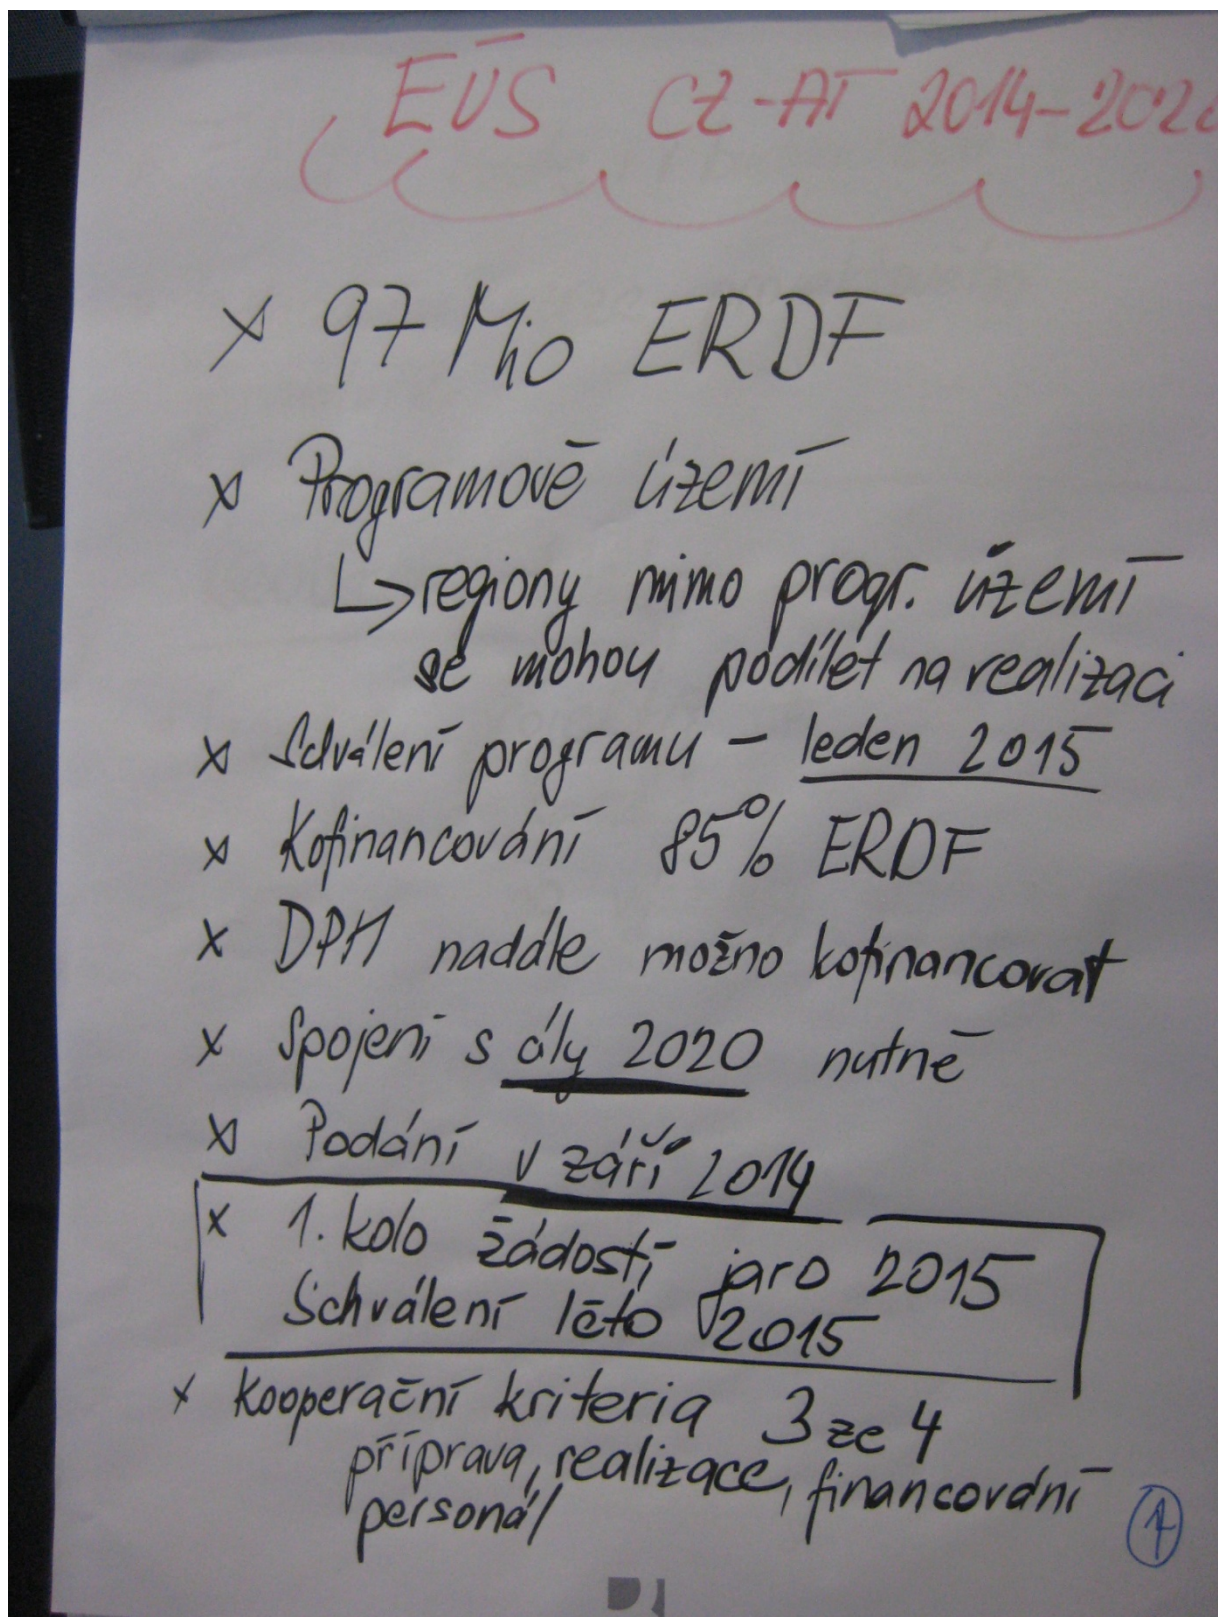 EÚS CZ-AT 2014-202
x 97 Mio ERDF
x Programové území
↳ regiony mimo progr. území
se mohou podílet na realizaci
x Schválení programu - leden 2015
x Kofinancování 85% ERDF
x DPH naddále možno kofinancovat
x Spojení s óly 2020 nutné
x Podání v září 2014
x 1. kolo žádostí jaro 2015
Schválení léto 2015
x kooperační kriteria 3 ze 4
příprava, realizace, financování
personál
1